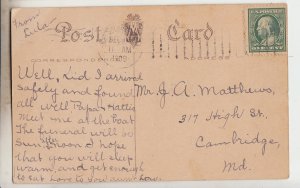 From
Lula
Post Card
DEC
11 AM
1909
CORRESPONDENCE
ADDRESS
Well, Kid I arrived
safely and found
all well Papa & Hattie
Meet me at the boat
The funeral will be
Sun. after noon. I hope
that you will sleep
warm, and get enough
to eat
Mr. J. A. Matthews,
317 High St.
Cambridge,
Md.